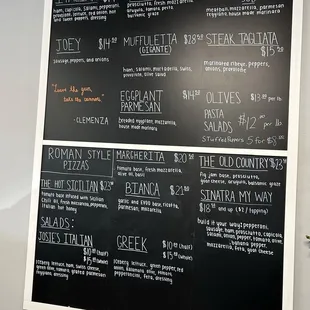 ham, capicola, salami, pepperoni,
provolone, lettuce, onion, hot
and sweet peppers, dressing
prosciutto, fresh mozzarella,
arugula, tomato
balsamic glaze
ham, mozzarella, parmesan
house made marinara
JOEY $14.50
Sausage, peppers, and onions
"Leave the gun,
take the cannoli."
-CLEMENZA
MUFFULETTA $28.50
(GIGANTE)
ham, salami, mortadella, swiss,
provolone, olive salad
EGGPLANT
PARMESAN
breaded eggplant, mozzarella,
house made marinara
STEAK TAGLIATA
$15.50
marinated ribeye, peppers,
onions, provolone
OLIVES $13 per lb
PASTA
SALADS $12.00 per lb
Stuffed Peppers 5 for $8.00
ROMAN STYLE
PIZZAS
THE HOT SICILIAN $23.50
tomato base infused with Sicilian
Chili oil, fresh mozzarella, pepperoni,
Italian hot honey
SALADS:
JOSIE'S ITALIAN
$10.00 (half)
$15.00 (whole)
iceberg lettuce, ham, Swiss cheese,
olive, tomato, grated parmesan
dressing
MARGHERITA $20.50
tomato base, fresh mozzarella,
olive oil, basil
BIANCA $21.50
garlic and EVOO base, ricotta,
parmesan, mozzarella
GREEK $10.00 (half)
$15.00 (whole)
iceberg lettuce, green pepper, red
onion, kalamata olive, tomato,
pepperoncini, feta, greek
dressing
THE OLD COUNTRY $23.50
fig jam base, prosciutto,
goat cheese, arugula, balsamic glaze
SINATRA MY WAY
$18.50 and up ($2 / topping)
build it your way: pepperoni,
sausage, ham, prosciutto, capicola,
salami, onion, pepper, tomato, olive,
banana pepper,
mozzarella, feta, goat cheese